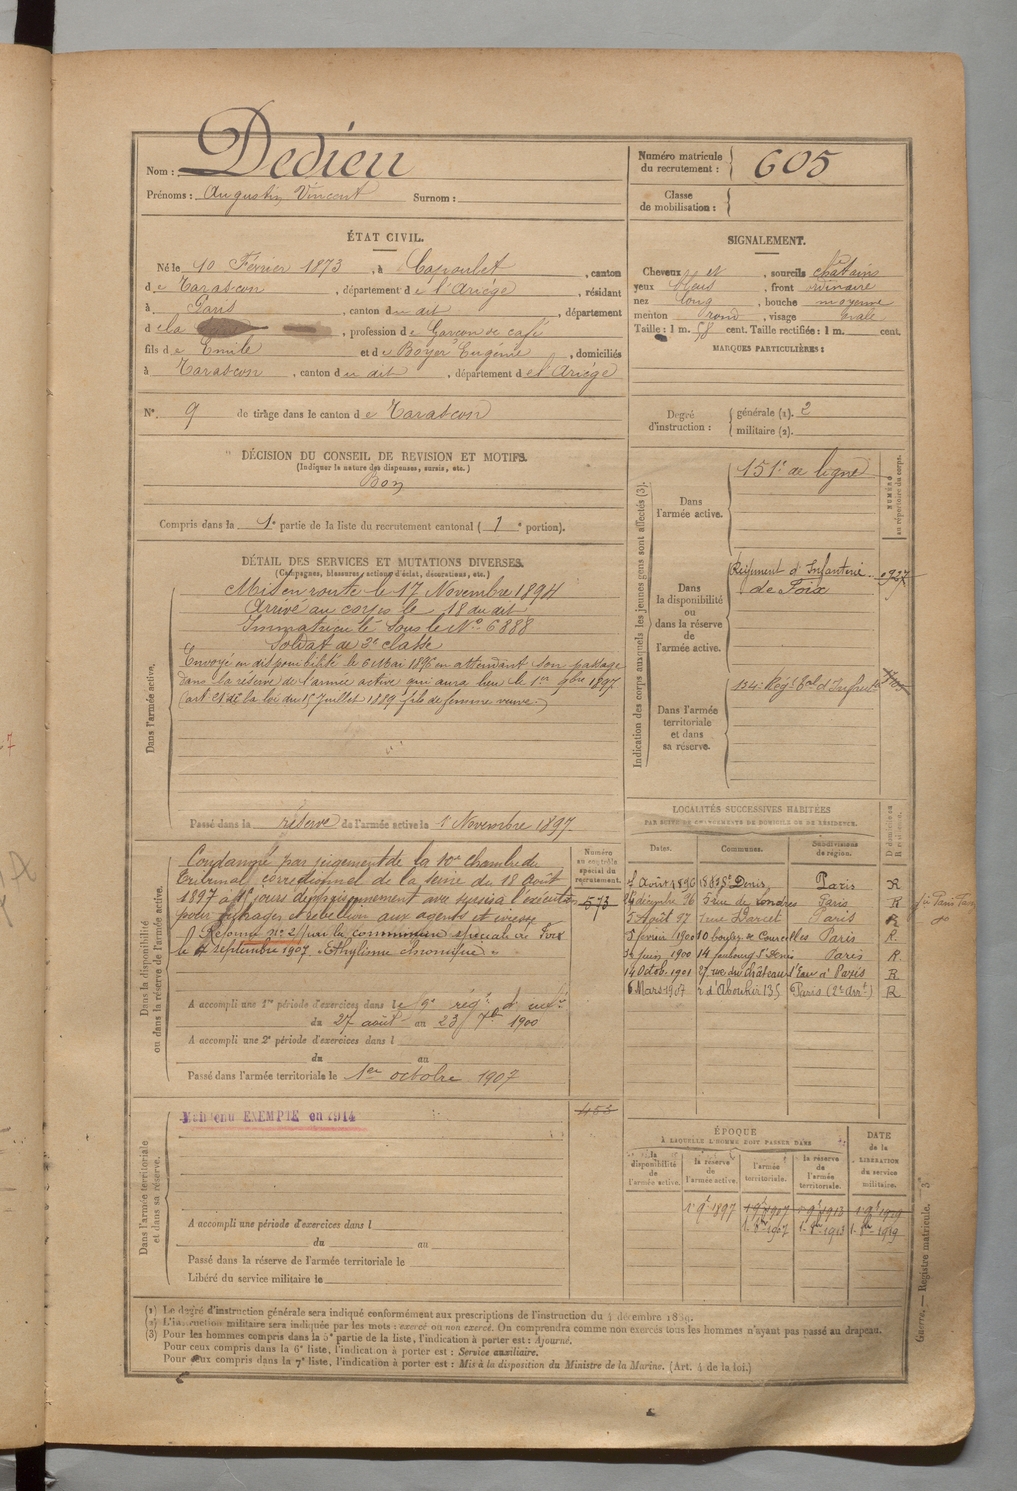 Nom : Dedieu
Prénoms : Augustin Vincent Surnom :
Numéro matricule du recrutement : 605
Classe de mobilisation :
ÉTAT CIVIL.
Né le 10 Février 1873, à Capoulet, canton
de Tarascon, département de l'Ariège, résidant
à Paris, canton du dit, département
de la, profession de Garçon de café
fils de Emile et de Boyer Eugénie, domiciliés
à Tarascon, canton du dit, département de l'Ariège
N°. 9 de tirage dans le canton de Tarascon
SIGNALEMENT.
Cheveux et, sourcils châtains
yeux bleus, front ordinaire
nez long, bouche moyenne
menton rond, visage ovale
Taille : 1 m. 58 cent. Taille rectifiée : 1 m. cent.
MARQUES PARTICULIÈRES :
Degré d'instruction : générale (1). 2
militaire (2).
DÉCISION DU CONSEIL DE REVISION ET MOTIFS.
(Indiquer la nature des dispenses, sursis, etc.)
Bon
Compris dans la 1e partie de la liste du recrutement cantonal (1e portion).
DÉTAIL DES SERVICES ET MUTATIONS DIVERSES.
(Campagnes, blessures, actions d'éclat, décorations, etc.)
Dans l'armée active.
Mis en route le 17 Novembre 1894
Arrivé au corps le 18 du dit
Immatriculé sous le No 6888
Soldat de 2e classe
Envoyé en disponibilité le 6 Mai 1896 en attendant son passage
dans la réserve de l'armée active qui aura lieu le 1er 9bre 1897
de la loi du 15 Juillet 1889 fils de femme veuve)
Passé dans la réserve de l'armée active le 1 Novembre 1897
Indication des corps auxquels les jeunes gens sont affectés (3).
NUMÉRO au répertoire du corps.
Dans l'armée active.
151e de ligne
Dans la disponibilité ou dans la réserve de l'armée active.
Régiment d'Infanterie
de Foix
Dans l'armée territoriale et dans sa réserve.
134e Régt Tal d'Infrie
Dans la disponibilité ou dans la réserve de l'armée active.
Condamné par jugement de la 10e chambre du
Tribunal correctionnel de la Seine du 18 août
1897 à jours d'emprisonnement avec sursis à l'exécution
pour outrages et rébellion aux agents et ivresse
Réformé no 2 par la commission spéciale de Foix
le septembre 1907 "Ethylisme chronique"
A accompli une 1re période d'exercices dans le 59e régt d'infie
du 27 août au 23 7bre 1900
A accompli une 2e période d'exercices dans l
du au
Passé dans l'armée territoriale le 1er octobre 1907
Numéro au contrôle spécial du recrutement.
573
453
LOCALITÉS SUCCESSIVES HABITÉES
PAR SUITE DE CHANGEMENTS DE DOMICILE OU DE RÉSIDENCE.
Dates. Communes. Subdivisions de région. D domicile ou R résidence.
Août 1896 St Denis Paris R
décembre 96 rue de Londres Paris R
Août 97 rue Darcet Paris R
février 1900 10 boulev. de Courcelles Paris R
Juin 1900 14 faubourg St Denis Paris R
14 Octob. 1901 27 rue du château d'Eau à Paris R
6 Mars 1907 r. d'Aboukir 135 Paris (2e Arrt) R
Dans l'armée territoriale et dans sa réserve.
Maintenu EXEMPTÉ en 1914
A accompli une période d'exercices dans l
du au
Passé dans la réserve de l'armée territoriale le
Libéré du service militaire le
ÉPOQUE
À LAQUELLE L'HOMME DOIT PASSER DANS
la disponibilité de l'armée active.
la réserve de l'armée active.
l'armée territoriale.
la réserve de l'armée territoriale.
DATE de la LIBÉRATION du service militaire.
1er 9e 1897
1 8bre 1907 1 8bre 1913 1 8bre 1919
(1) Le degré d'instruction générale sera indiqué conformément aux prescriptions de l'instruction du 4 décembre 1889.
(2) L'instruction militaire sera indiquée par les mots : exercé ou non exercé. On comprendra comme non exercés tous les hommes n'ayant pas passé au drapeau.
(3) Pour les hommes compris dans la 5e partie de la liste, l'indication à porter est : Ajourné.
Pour ceux compris dans la 6e liste, l'indication à porter est : Service auxiliaire.
Pour ceux compris dans la 7e liste, l'indication à porter est : Mis à la disposition du Ministre de la Marine. (Art. 4 de la loi.)
Guerre. — Registre matricule. — 3e